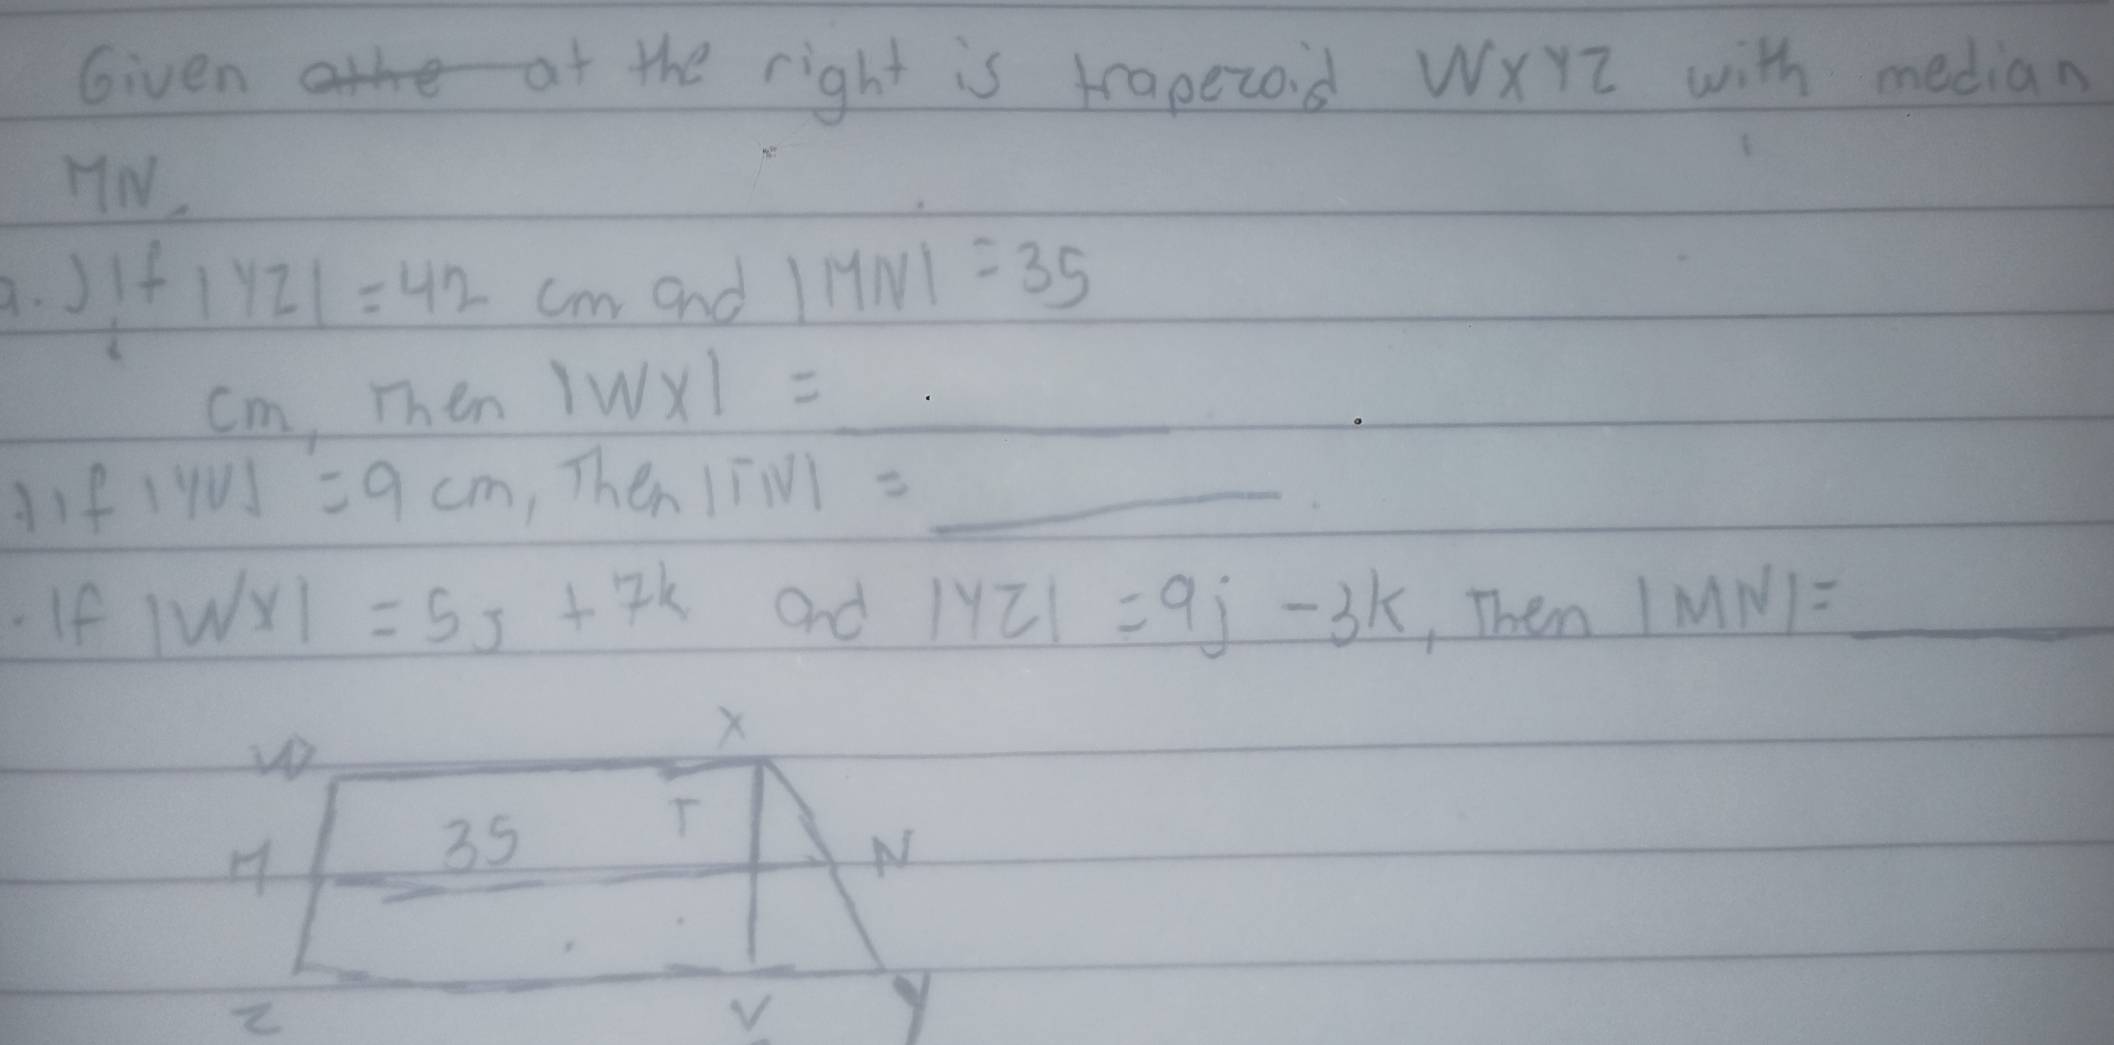 Given athe at the right is trapezoid WXYZ with median
MN.
a.) If |YZ| = 42 cm and |MN| = 35
cm, Then |WX| =
) If |YV| = 9 cm, Then |TN| =
. If |WX| = 5j + 7k and |YZ| = 9j - 3k, Then |MN| =
W X
35 T
M N
Z V Y